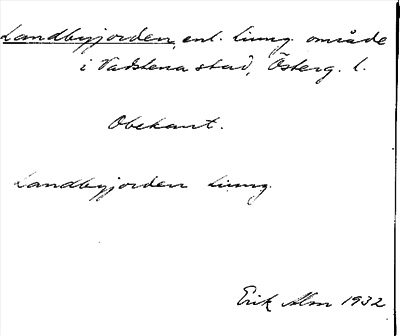 Landbyjorden, enl. Liung. område
i Vadstena stad, Österg. l.
Obekant.
Landbyjorden Liung.
Erik Alm 1932